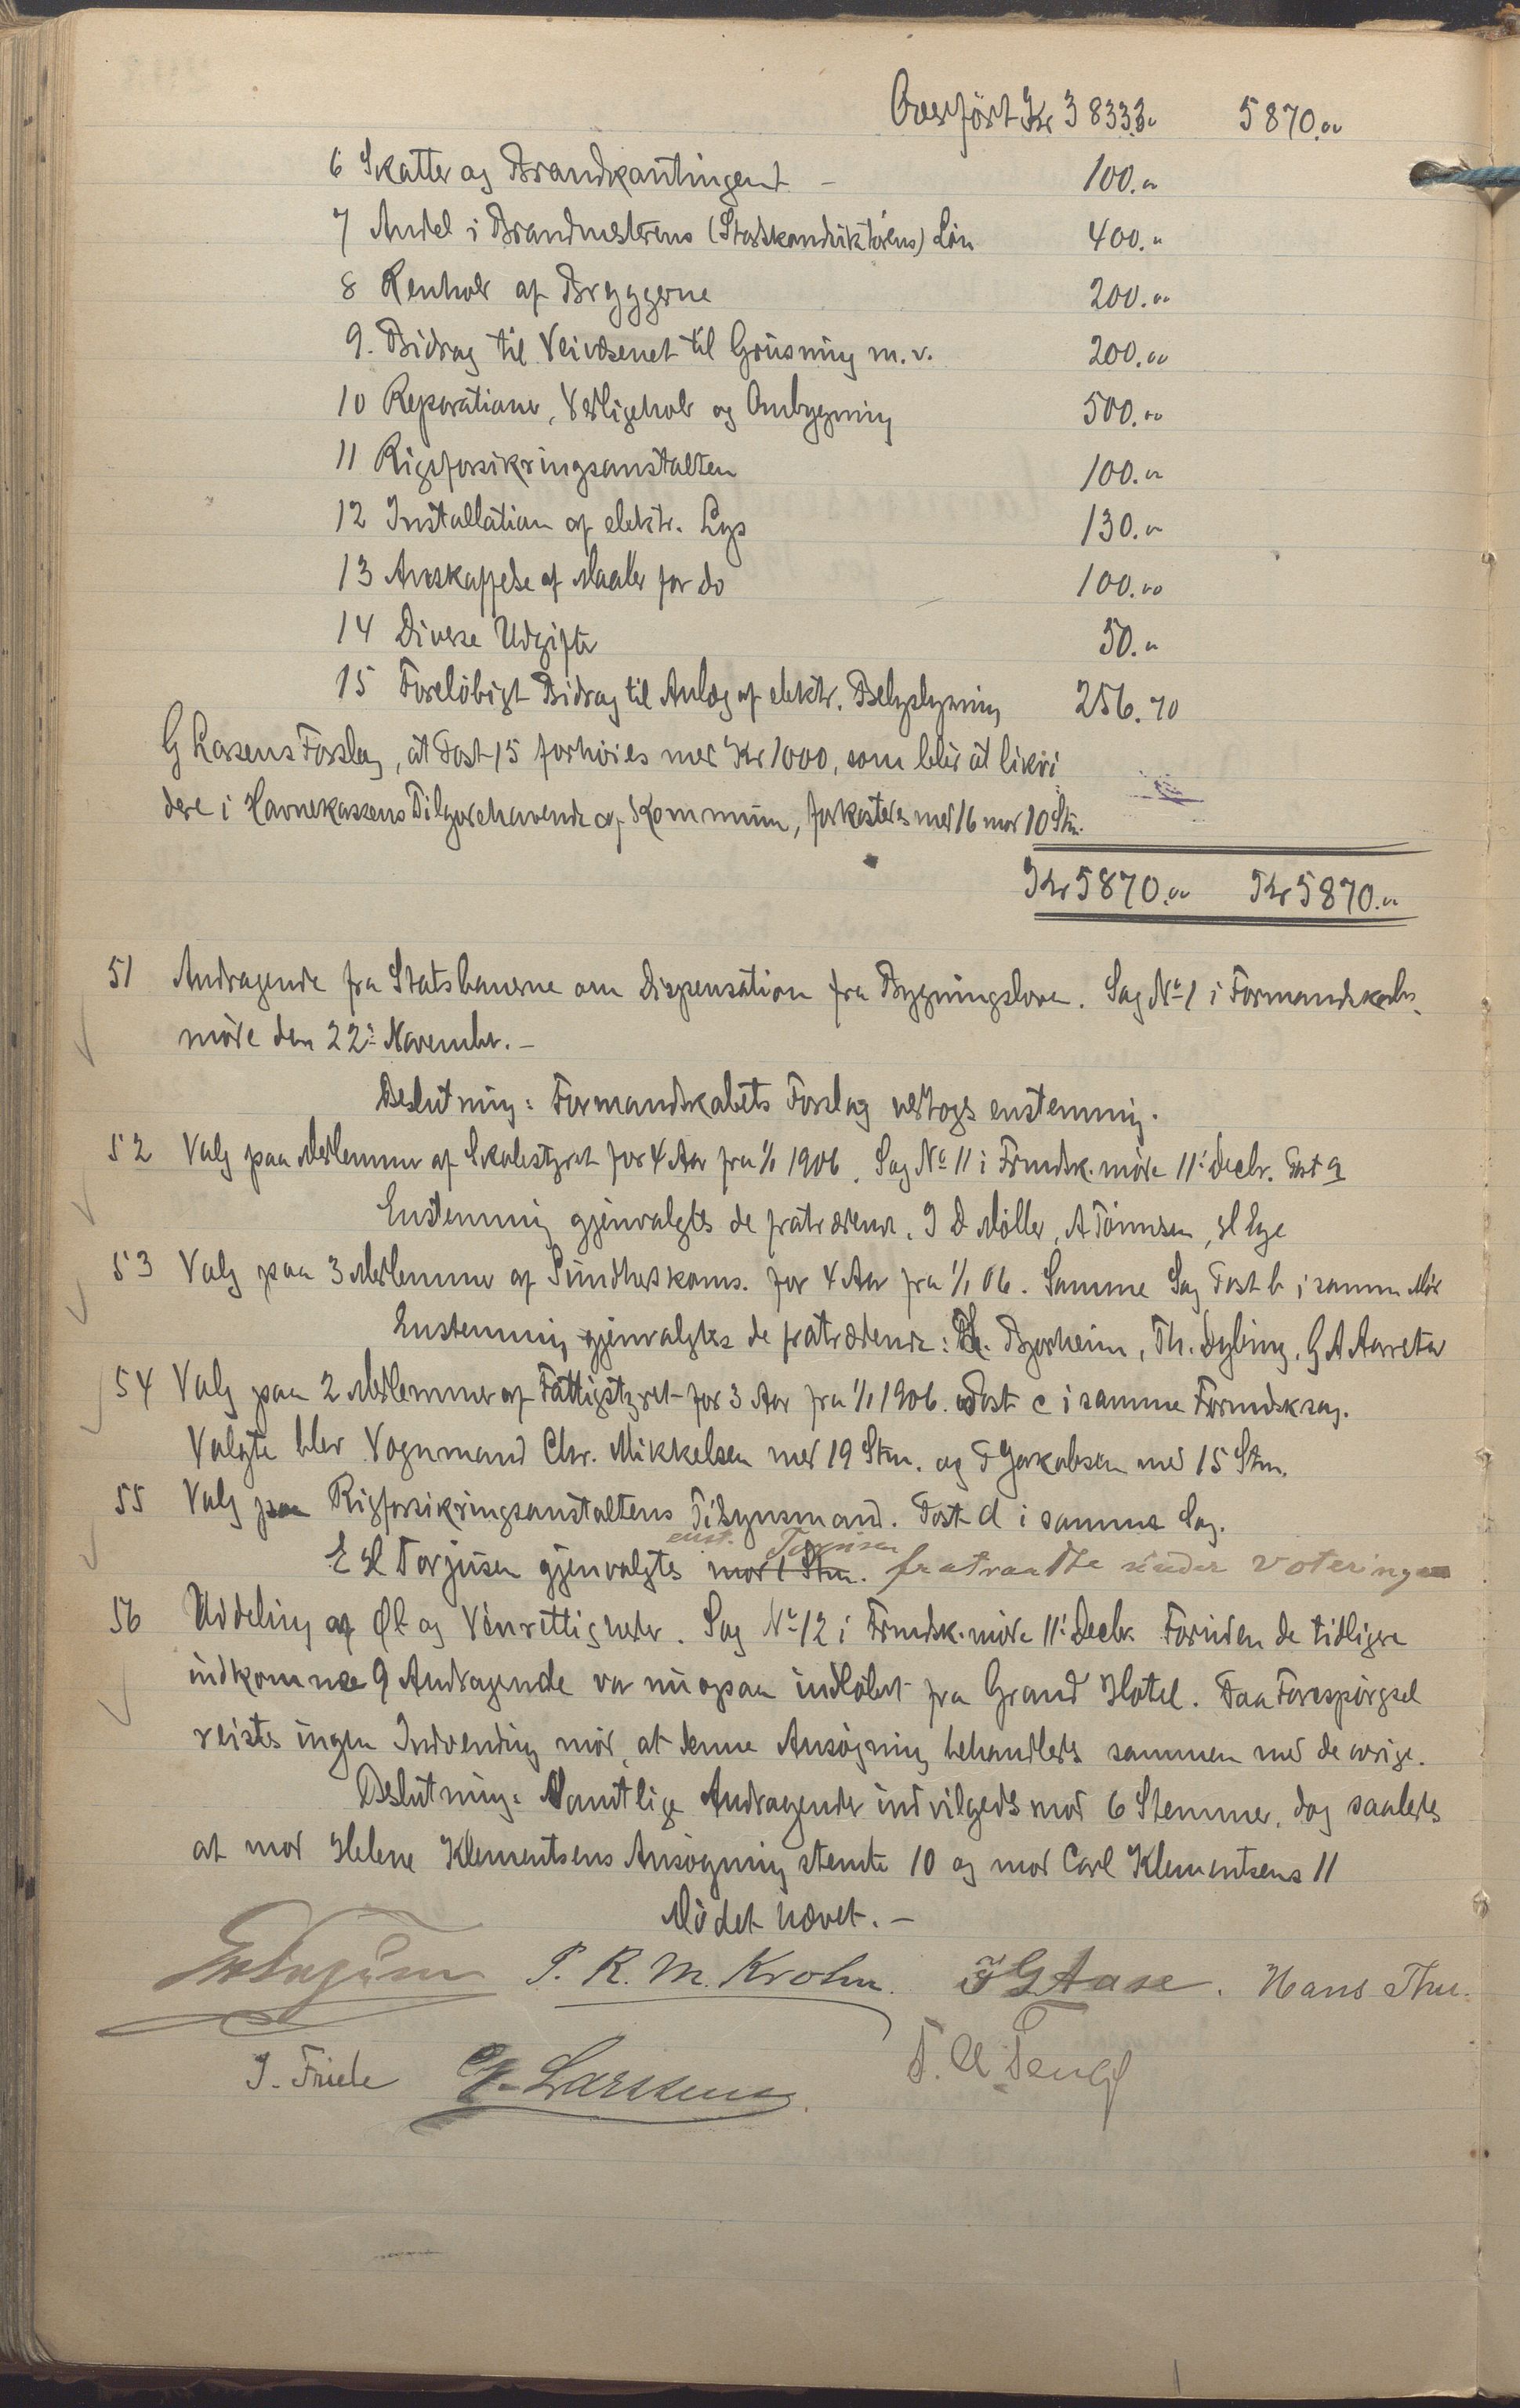 Overført Kr 3 833.30 5 870.00
6 Skatter og Brandkontingent - 100.00
7 Andel i Brandmesterens (Stadskonduktørens) Løn 400.00
8 Renhold af Bryggerne 200.00
9. Bidrag til Veivæsenet til Grusning m.v. 200.00
10 Reparationer, Vedligehold og Ombygning 500.00
11 Rigsforsikringsanstalten 100.00
12 Installation af elektr. Lys 130.00
13 Anskaffelse af Maaler for do 100.00
14 Diverse Udgifter 50.00
15 Foreløbigt Bidrag til Anlæg af elektr. Belysning 256.70
G Larsens Forslag, at Post 15 forhøies med Kr 1000, som blir at likvi
dere i Havnekassens Tilgodehavende af Kommunen, forkastedes med 16 mod 10 Stm.
Kr 5870.00 Kr 5870.00
51 Andragende fra Statsbanerne om Dispensation fra Bygningsloven. Sag No 1 i Formandskabs
møde den 22: November. -
Beslutning: Formandskabets Forslag vedtoges enstemmig.
52 Valg paa Medlemmer af Skolestyret for 4 Aar fra 1/1 1906. Sag No 11 i Frmdsk. møde 11: Decbr. Post a
Enstemmig gjenvalgtes de fratrædende. I D Møller, A Tønnesen, H Eye
53 Valg paa 3 Medlemmer af Sundhedskoms. for 4 Aar fra 1/1 06. Samme Sag Post b i samme Mød
Enstemmig gjenvalgtes de fratrædende: Bjorheim, Th. Dybing, G A Aarrestad
54 Valg paa 2 Medlemmer af Fattigstyret for 3 Aar fra 1/1 1906. Post c i samme Formdsksag.
Valgte blev Vognmand Chr. Mikkelsen med 19 Stm. og T Jakobsen med 15 Stm.
55 Valg paa Rigsforsikringsanstaltens Tilsynsmand. Post d i samme Sag.
enst. Torjusen
E H Torjusen gjenvalgtes mod 1 Stm. fratraadte under voteringen
56 Uddeling af Øl og Vinrettigheder. Sag No 12 i Frmdsk. møde 11: Decbr. Foruden de tidligere
indkomne 9 Andragende var nu ogsaa indløbet fra Grand Hotel. Paa Forespørgsel
reistes ingen Indvending mod, at denne Ansøgning behandledes sammen med de øvrige.
Beslutning: Samtlige Andragender indvilgedes mod 6 Stemmer, dog saaledes
at mod Helene Klementsens Ansøgning stemte 10 og mod Carl Klementsens 11
Mødet hævet. -
P. R. M. Krohn. G Aase. Hans Thu.
G. Larssen